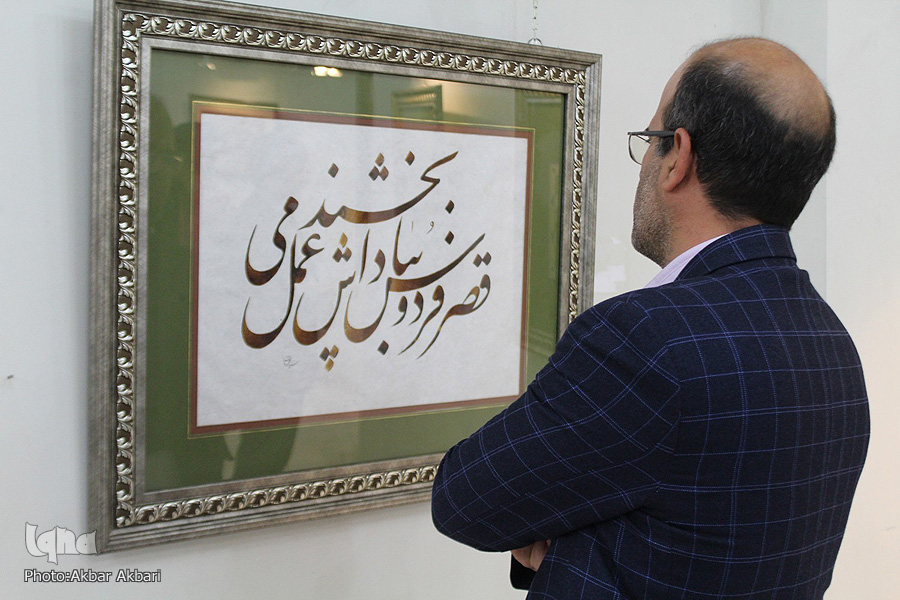 قصر فردوس بپاداش عمل می بخشند
Iqna
Photo:Akbar Akbari